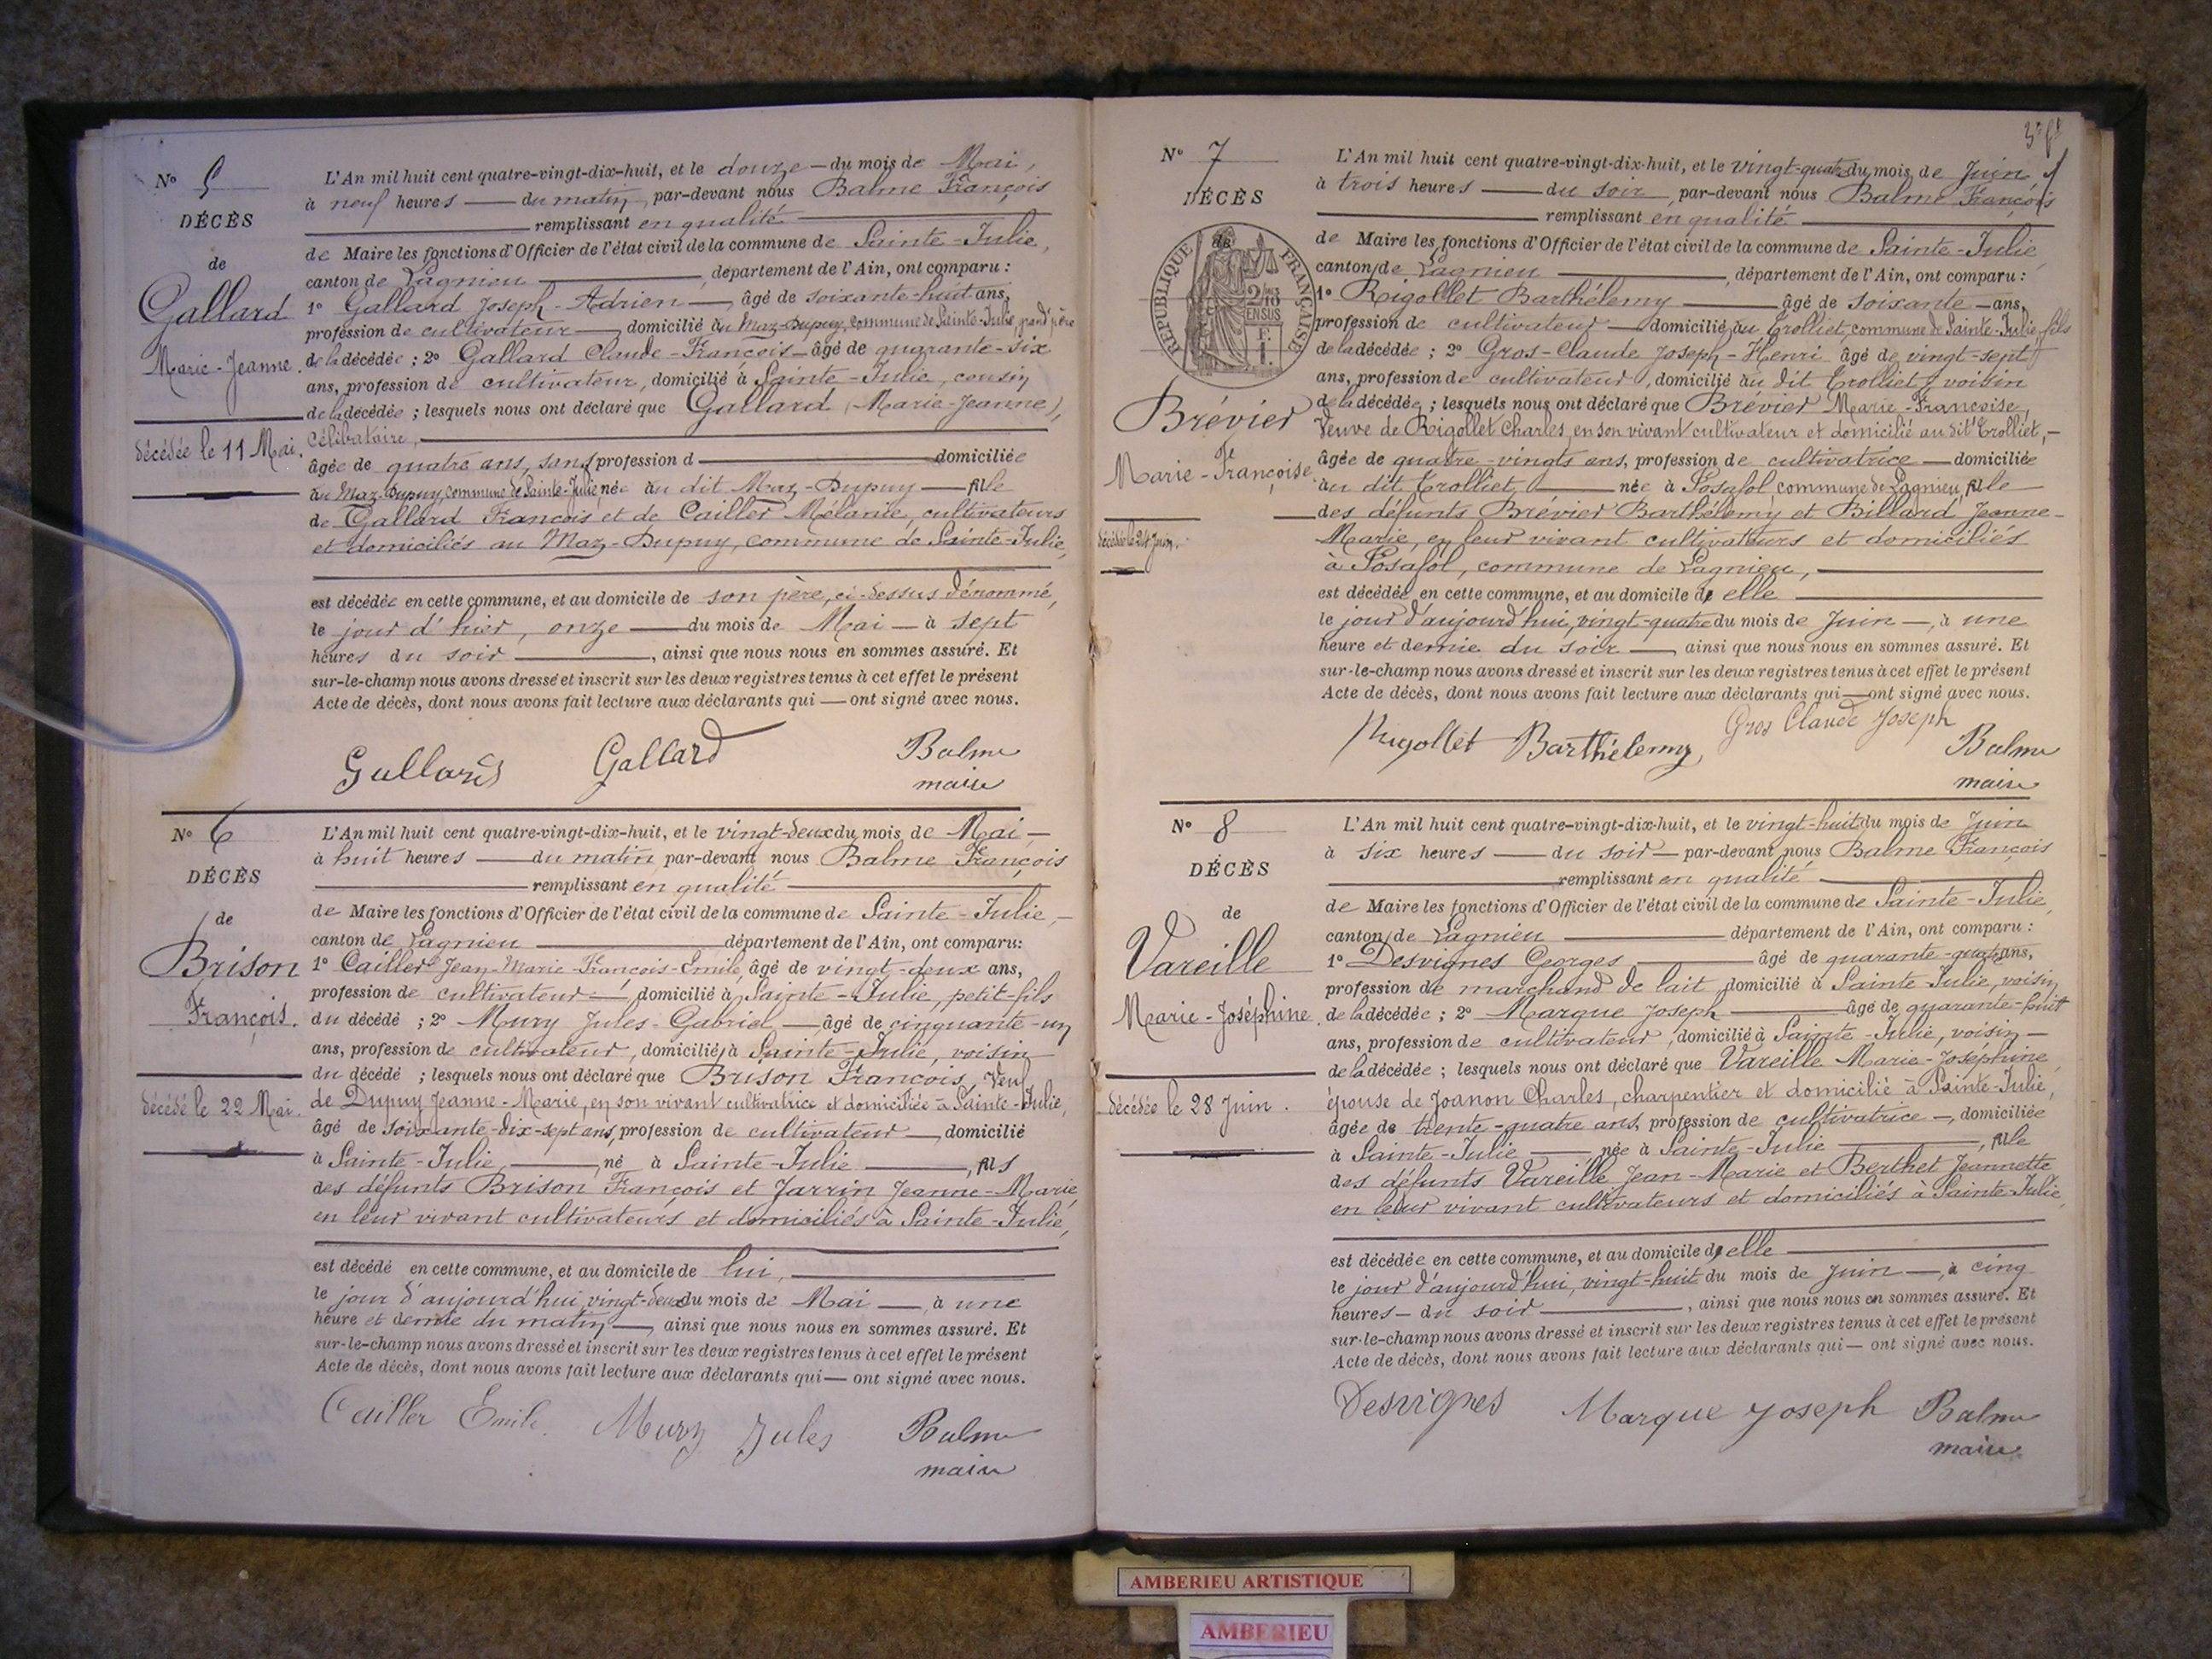 N° 5
DÉCÈS
de
Gallard
Marie-Jeanne.
décédée le 11 Mai.
L'An mil huit cent quatre-vingt-dix-huit, et le douze — du mois de Mai,
à neuf heures — du matin, par-devant nous Balme François
remplissant en qualité
de Maire les fonctions d'Officier de l'état civil de la commune de Sainte-Julie,
canton de Lagnieu —, département de l'Ain, ont comparu :
1° Gallard Joseph-Adrien —, âgé de soixante-huit ans,
profession de cultivateur —, domicilié au Maz-Dupuy, commune de Sainte-Julie, grand'père
de la décédée ; 2° Gallard Claude-François — âgé de quarante-six
ans, profession de cultivateur, domicilié à Sainte-Julie, cousin
de la décédée ; lesquels nous ont déclaré que Gallard (Marie-Jeanne),
célibataire,
âgée de quatre ans, sans profession d — domiciliée
au Maz-Dupuy, commune de Sainte-Julie, née au dit Maz-Dupuy — fille
de Gallard François et de Cailler Mélanie, cultivateurs
et domiciliés au Maz-Dupuy, commune de Sainte-Julie,
est décédée en cette commune, et au domicile de son père, ci-dessus dénommé,
le jour d'hier, onze — du mois de Mai — à sept
heures du soir —, ainsi que nous nous en sommes assuré. Et
sur-le-champ nous avons dressé et inscrit sur les deux registres tenus à cet effet le présent
Acte de décès, dont nous avons fait lecture aux déclarants qui — ont signé avec nous.
Gallard Gallard Balme
maire
N° 6
DÉCÈS
de
Brison
François.
décédé le 22 Mai.
L'An mil huit cent quatre-vingt-dix-huit, et le vingt-deux du mois de Mai —
à huit heures — du matin, par-devant nous Balme François
remplissant en qualité
de Maire les fonctions d'Officier de l'état civil de la commune de Sainte-Julie, —
canton de Lagnieu — département de l'Ain, ont comparu :
1° Cailler Jean-Marie-François-Emile, âgé de vingt-deux ans,
profession de cultivateur —, domicilié à Sainte-Julie, petit-fils
du décédé ; 2° Mury Jules-Gabriel — âgé de cinquante-un
ans, profession de cultivateur, domicilié à Sainte-Julie, voisin
du décédé ; lesquels nous ont déclaré que Brison François, Veuf
de Dupuy Jeanne-Marie, en son vivant cultivatrice et domiciliée à Sainte-Julie,
âgé de soixante-dix-sept ans, profession de cultivateur —, domicilié
à Sainte-Julie, —, né à Sainte-Julie —, fils
des défunts Brison François et Jarrin Jeanne-Marie,
en leur vivant cultivateurs et domiciliés à Sainte-Julie,
est décédé en cette commune, et au domicile de lui,
le jour d'aujourd'hui, vingt-deux du mois de Mai —, à une
heure et demie du matin —, ainsi que nous nous en sommes assuré. Et
sur-le-champ nous avons dressé et inscrit sur les deux registres tenus à cet effet le présent
Acte de décès, dont nous avons fait lecture aux déclarants qui — ont signé avec nous.
Cailler Emile. Mury Jules Balme
maire
N° 7
DÉCÈS
de
RÉPUBLIQUE FRANÇAISE
Brévier
Marie-Françoise.
décédée le 24 Juin.
L'An mil huit cent quatre-vingt-dix-huit, et le vingt-quatre du mois de Juin
à trois heures — du soir, par-devant nous Balme François
remplissant en qualité
de Maire les fonctions d'Officier de l'état civil de la commune de Sainte-Julie,
canton de Lagnieu —, département de l'Ain, ont comparu :
1° Rigollet Barthélemy — âgé de soixante — ans,
profession de cultivateur — domicilié au Trolliet, commune de Sainte-Julie, fils
de la décédée ; 2° Gros-Claude Joseph-Henri âgé de vingt-sept
ans, profession de cultivateur, domicilié au dit Trolliet, voisin
de la décédée ; lesquels nous ont déclaré que Brévier Marie-Françoise,
Veuve de Rigollet Charles, en son vivant cultivateur et domicilié au dit Trolliet, —
âgée de quatre-vingts ans, profession de cultivatrice — domiciliée
au dit Trolliet — née à Posafol, commune de Lagnieu, fille
des défunts Brévier Barthélemy et Billard Jeanne-
Marie, en leur vivant cultivateurs et domiciliés
à Posafol, commune de Lagnieu,
est décédée en cette commune, et au domicile d'elle
le jour d'aujourd'hui, vingt-quatre du mois de Juin —, à une
heure et demie du soir —, ainsi que nous nous en sommes assuré. Et
sur-le-champ nous avons dressé et inscrit sur les deux registres tenus à cet effet le présent
Acte de décès, dont nous avons fait lecture aux déclarants qui — ont signé avec nous.
Rigollet Barthélemy, Gros Claude Joseph Balme
maire
N° 8
DÉCÈS
de
Vareille
Marie-Joséphine.
décédée le 28 Juin.
L'An mil huit cent quatre-vingt-dix-huit, et le vingt-huit du mois de Juin
à six heures — du soir — par-devant nous Balme François
remplissant en qualité
de Maire les fonctions d'Officier de l'état civil de la commune de Sainte-Julie,
canton de Lagnieu — département de l'Ain, ont comparu :
1° Desvignes Georges — âgé de quarante-quatre ans,
profession de marchand de lait, domicilié à Sainte-Julie, voisin
de la décédée ; 2° Marque Joseph — âgé de quarante-huit
ans, profession de cultivateur, domicilié à Sainte-Julie, voisin —
de la décédée ; lesquels nous ont déclaré que Vareille Marie-Joséphine,
épouse de Joanon Charles, charpentier et domicilié à Sainte-Julie,
âgée de trente-quatre ans, profession de cultivatrice —, domiciliée
à Sainte-Julie —, née à Sainte-Julie —, fille
des défunts Vareille Jean-Marie et Berthet Jeannette
en leur vivant cultivateurs et domiciliés à Sainte-Julie,
est décédée en cette commune, et au domicile d'elle
le jour d'aujourd'hui, vingt-huit du mois de Juin —, à cinq
heures — du soir —, ainsi que nous nous en sommes assuré. Et
sur-le-champ nous avons dressé et inscrit sur les deux registres tenus à cet effet le présent
Acte de décès, dont nous avons fait lecture aux déclarants qui — ont signé avec nous.
Desvignes Marque Joseph Balme
maire
AMBERIEU ARTISTIQUE
AMBERIEU